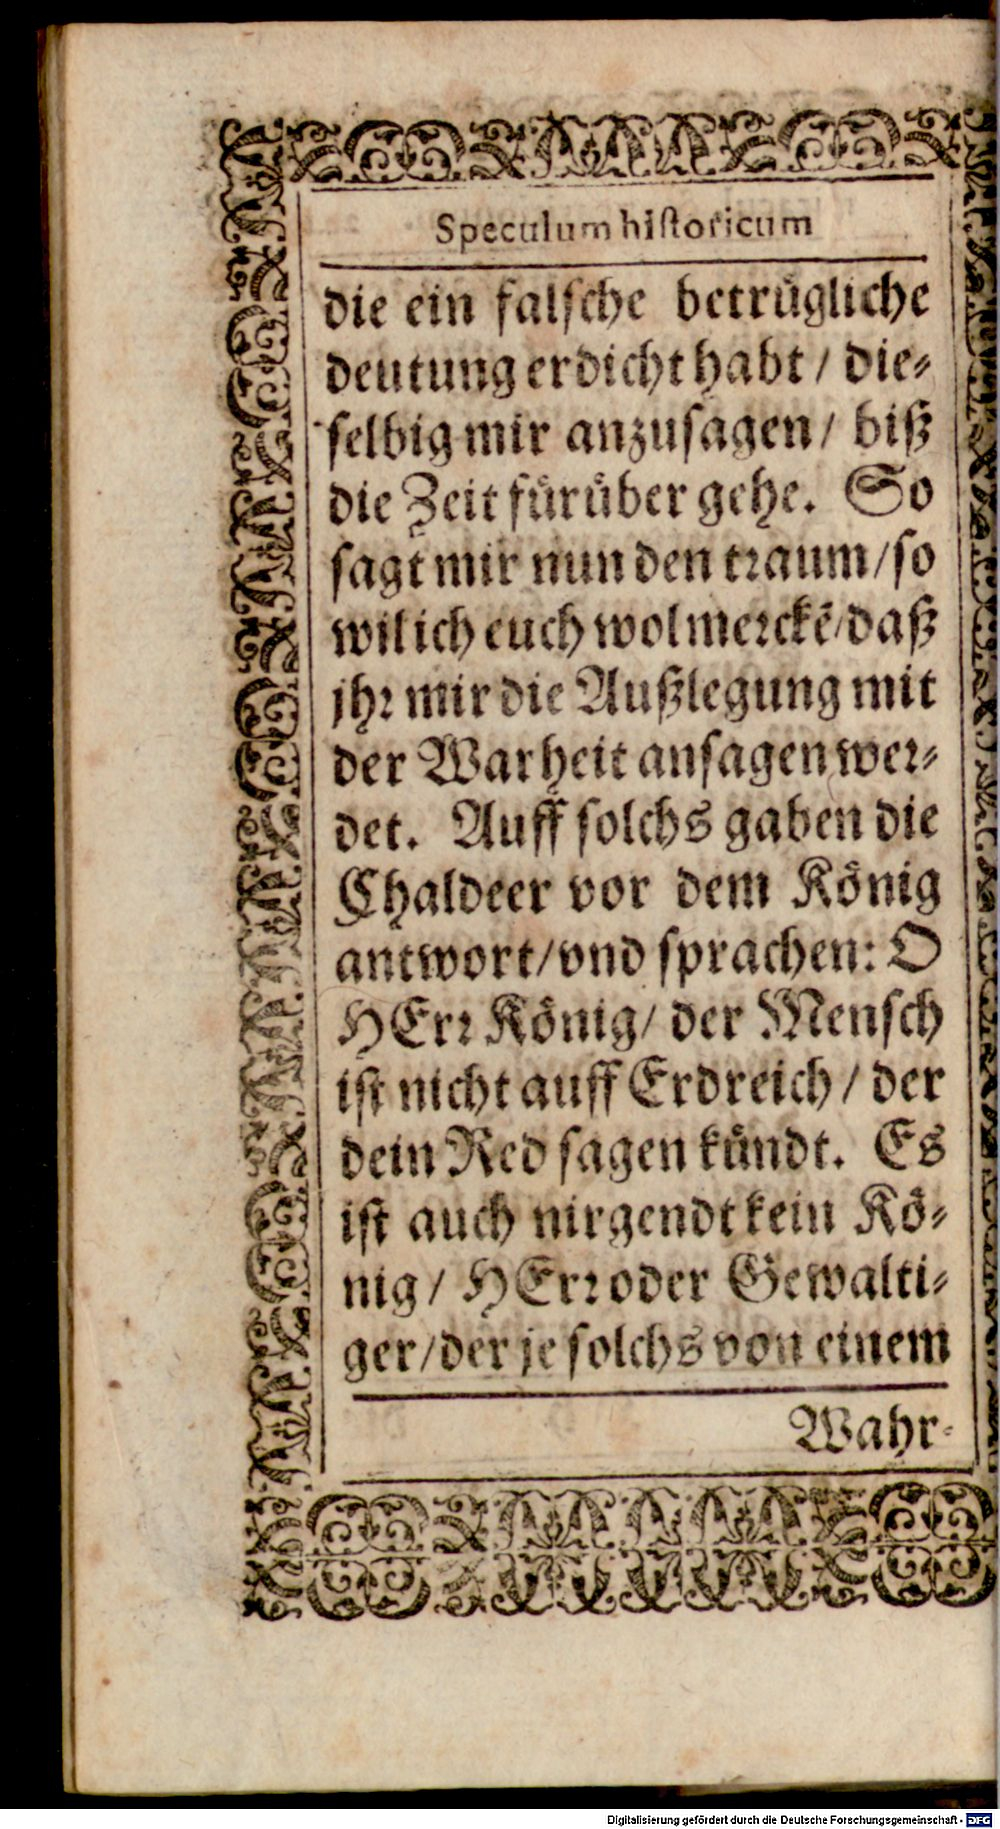 Speculum hiſtoricum
die ein falſche betrügliche
deutung erdicht habt / die⸗
ſelbig mir anzuſagen / biß
die Zeit fürüber gehe. So
ſagt mir nun den tꝛaum / ſo
wil ich euch wol meꝛckẽ / daß
jhꝛ mir die Außlegung mit
der Warheit anſagen weꝛ⸗
det. Auff ſolchs gaben die
Chaldeer vor dem König
antwort / vnd ſprachen: O
HErꝛ König / der Menſch
iſt nicht auff Erdreich / der
dein Red ſagen kündt. Es
iſt auch nirgendt kein Kö⸗
nig / HErꝛ oder Gewalti⸗
ger / der je ſolchs von einem
Wahr⸗
Digitalisierung gefördert durch die Deutsche Forschungsgemeinschaft - DFG